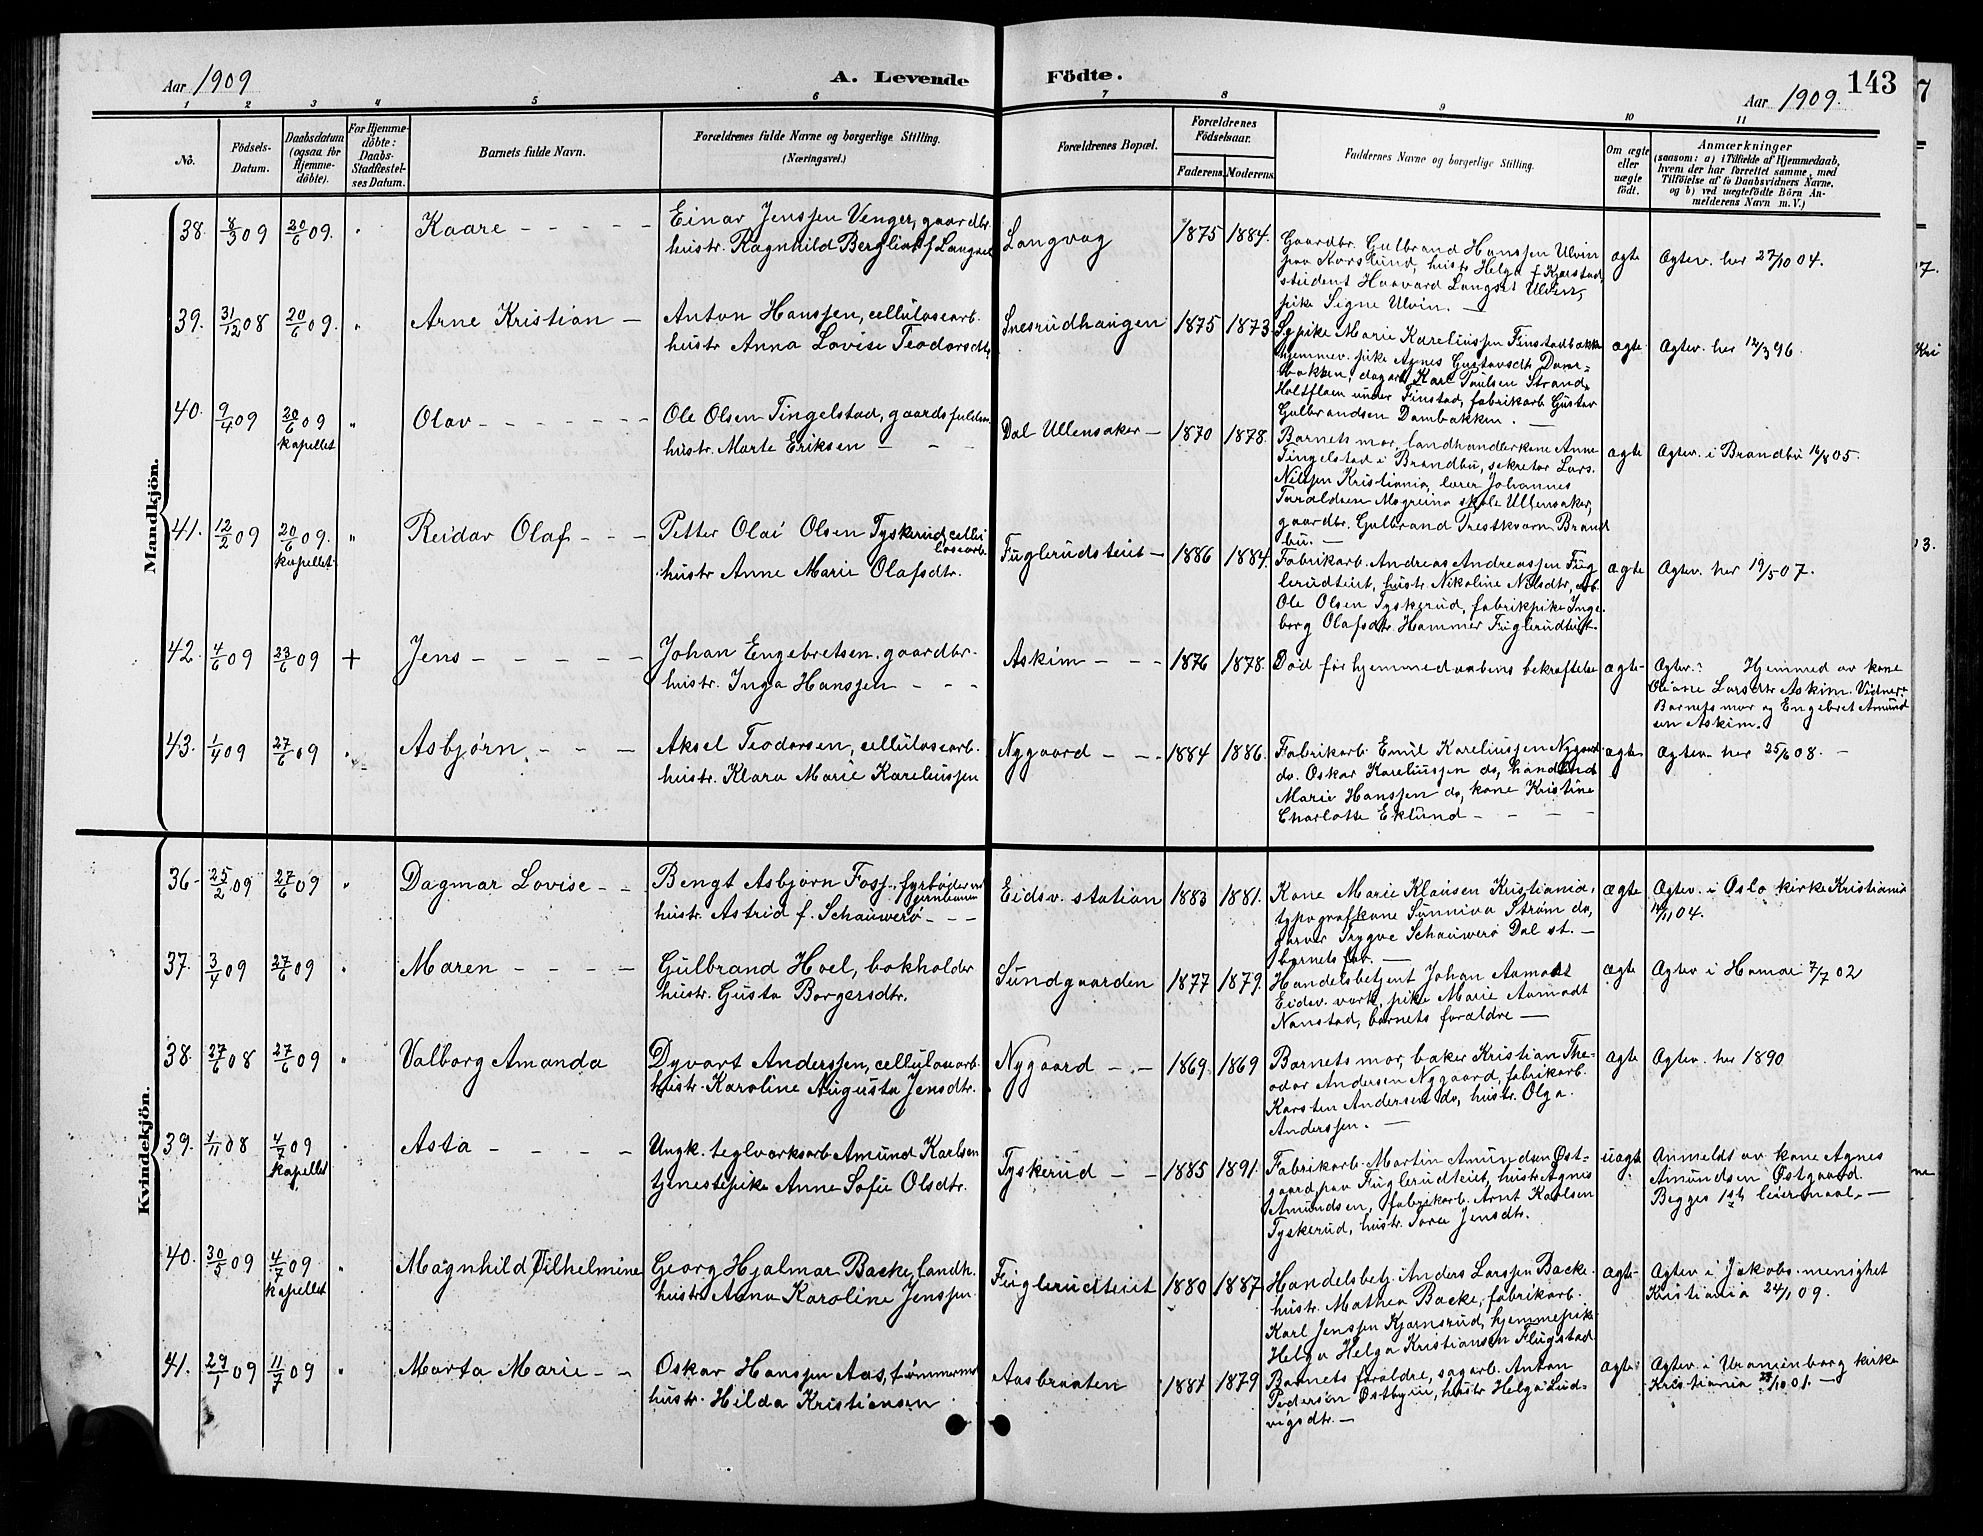 Aar 1909
A. Levende Födte.
143
Aar 1909.
1 2 3 4 5 6 7 8 9 10 11
No.
Födsels-Datum.
Daabsdatum (ogsaa for Hjemme-döbte).
For Hjemme-döbte: Daabs-Stadfæstel-ses Datum.
Barnets fulde Navn.
Forældrenes fulde Navne og borgerlige Stilling.
(Næringsvei.)
Forældrenes Bopæl.
Forældrenes Födselsaar.
Faderens. Moderens.
Faddernes Navne og borgerlige Stilling.
Om ægte eller uægte födt.
Anmærkninger
(saasom: a) i Tilfælde af Hjemmedaab,
hvem der har forrettet samme, med
Tilföielse af to Daabsvidners Navne,
og b) ved uægtefödte Börn An-
melderens Navn m. V.)
Mandkjön.
38. 8/3 09 20/6 09. " Kaare - - - - -
Einar Jenssen Venger, gaardbr.
hustr. Ragnhild Bergliot f. Langset
Langvag 1875 1884.
Gaardbr. Gulbrand Hanssen Ulvin
paa Korslund, hustr Helga f Kjærstad,
student Haavard Langset Ulvin,
pike Signe Ulvin. —
ægte Ægtev. her 27/10 04.
39. 31/12 08 20/6 09. " Arne Kristian —
Anton Hanssen, cellulosearb.
hustr Anna Lovise Teodorsdtr
Snesrudhaugen 1875 1873.
Sypike Marie Kareliussen Finstadbakke
hjemmev. pike Agnes Gustavsdtr Dam-
bakken, dagarb. Karl Paulsen Strand,
Holtflaen under Finstad, fabrikarb Gustav
Gulbrandsen Dambakken. —
ægte Ægtev. her 12/3 96.
40. 9/4 09 20/6 09 kapellet " Olav - - - - - -
Ole Olsen Tingelstad, gaardsfuldm.
hustr. Marte Eriksen — - -
Dal Ullensaker — 1870 1878.
Barnets mor, landhandlerkone Anne
Tingelstad i Brandbu, sekretær Lars
Nilssen Kristiania, lærer Johannes
Taraldsen Mogreina skole Ullensaker,
gaardbr. Gulbrand Prestkværn Brand
bu. —
ægte Ægtev. i Brandbu 16/8 05.
41. 12/2 09 20/6 09. kapellet " Reidar Olaf - - -
Petter Olai Olsen Tyskerud, cellu
losearb.
hustr Anne Marie Olafsdtr.
Fuglerudsteiet — 1886 1884.
Fabrikarb. Andreas Andreassen Fug
lerudteiet, hustr. Nikoline Nilsdtr, arb.
Ole Olsen Tyskerud, fabrikpike Inge-
borg Olafsdtr. Hammer Fuglerudteiet.
ægte Ægtev. her 19/5 07.
42. 4/6 09 23/6 09 + Jens - - - - -
Johan Engebretsen. gaardbr.
hustr. Inga Hanssen - - -
Askim - - - 1876 1878.
Død før hjemmedaabens bekræftelse
ægte- Ægtev.: Hjemmed av kone
Oleane Larsdtr Askim. Vidner:
Barnets mor og Engebret Amund
sen Askim.
43. 1/4 09 27/6 09 " Asbjørn. - - -
Aksel Teodorsen, cellulosearb.
hustr. Klara Marie Kareliussen
Nygaard - - - 1884 1886.
Fabrikarb. Emil Kareliussen Nygaard
do. Oskar Kareliussen do,
Marie Hanssen do, kone Kristine
Charlotte Eklund - - - -
ægte Ægtev. her 25/ 08. -
Kvindekjön.
36- 25/2 09 27/6 09 " Dagmar Lovise - -
Bengt Asbjørn Foss, fyrbøder ved
jernbanen
hustr. Astrid f. Schauwerö - - -
Eidsv. station 1883 1881.
Kone Marie Klausen Kristiania,
typografkone Sunniva Strøm do,
garver Trygve Schauwerö Dal st. —
barnets far. —
ægte Ægtev. i Oslo kirke Kristiania
/11 04.
37. 3/4 09 27/6 09 " Maren - - - -
Gulbrand Hoel, bokholder
hustr. Gusta Borgersdtr.
Sundgaarden 1877 1879.
Handelsbetjent Johan Aamodt
Eidsv. værk, pike Marie Aamodt
Nanstad, barnets forældre —
ægte Ægtev i Hamar 7/7 02
38. 27/6 08 27/6 09 " Valborg Amanda
Dyvart Anderssen, cellulosearb.
hustr. Karoline Augusta Jensdtr.
Nygaard - - — 1869. 1869
Barnets mor, baker Kristian The-
odor Andersen Nygaard, fabrikarb.
Karsten Andersen do, hustr. Olga
Anderssen. —
ægte Ægtev. her 1890
39. 1/11 08 4/7 09 kapellet Asta - - - -
Ungk. teglverksarb Amund Karlsen
tjenestepike Anne Sofie Olsdtr.
Tyskerud - - 1885 1891.
Fabrikarb. Martin Amundsen Øst-
gaard paa Fuglerudteiet, hustr Agnes
Amundsen, fabrikarb. Arnt Karlsen
Tyskerud, hustr. Jensdtr.
uægte Anmeldt av kone Agnes
Amundsen Østgaard.
Begges 1ste leiermaal. —
40. 30/5 09 4/7 09 kapellet " Magnhild Vilhelmine
Georg Hjalmar Backe, landh.
hustr. Anna Karoline Jenssen
Fuglerudteiet 1880 1887
Handelsbetj. Anders Larssen Backe
hustr. Mathea Backe, fabrikarb.
Karl Jenssen Kjærnsrud, hjemmepike
Helga Helga Kristiansen Flugstad
ægte- Ægtev i Jakobs menighet
Kristiania 24/1 09.
41. 29/1 09 11/7 09 " Marta Marie - -
Oskar Hanssen Aas, tømmerm.
hustr. Hilda Kristiansen
Aasbraaten 1881 1879
Barnets forældre, sagarb. Anton
Pedersen Østbyeie, hustr Helga Lud-
vigsdtr. —
ægte Ægtev. i Uranienborg kirke
Kristiania /10 01. —